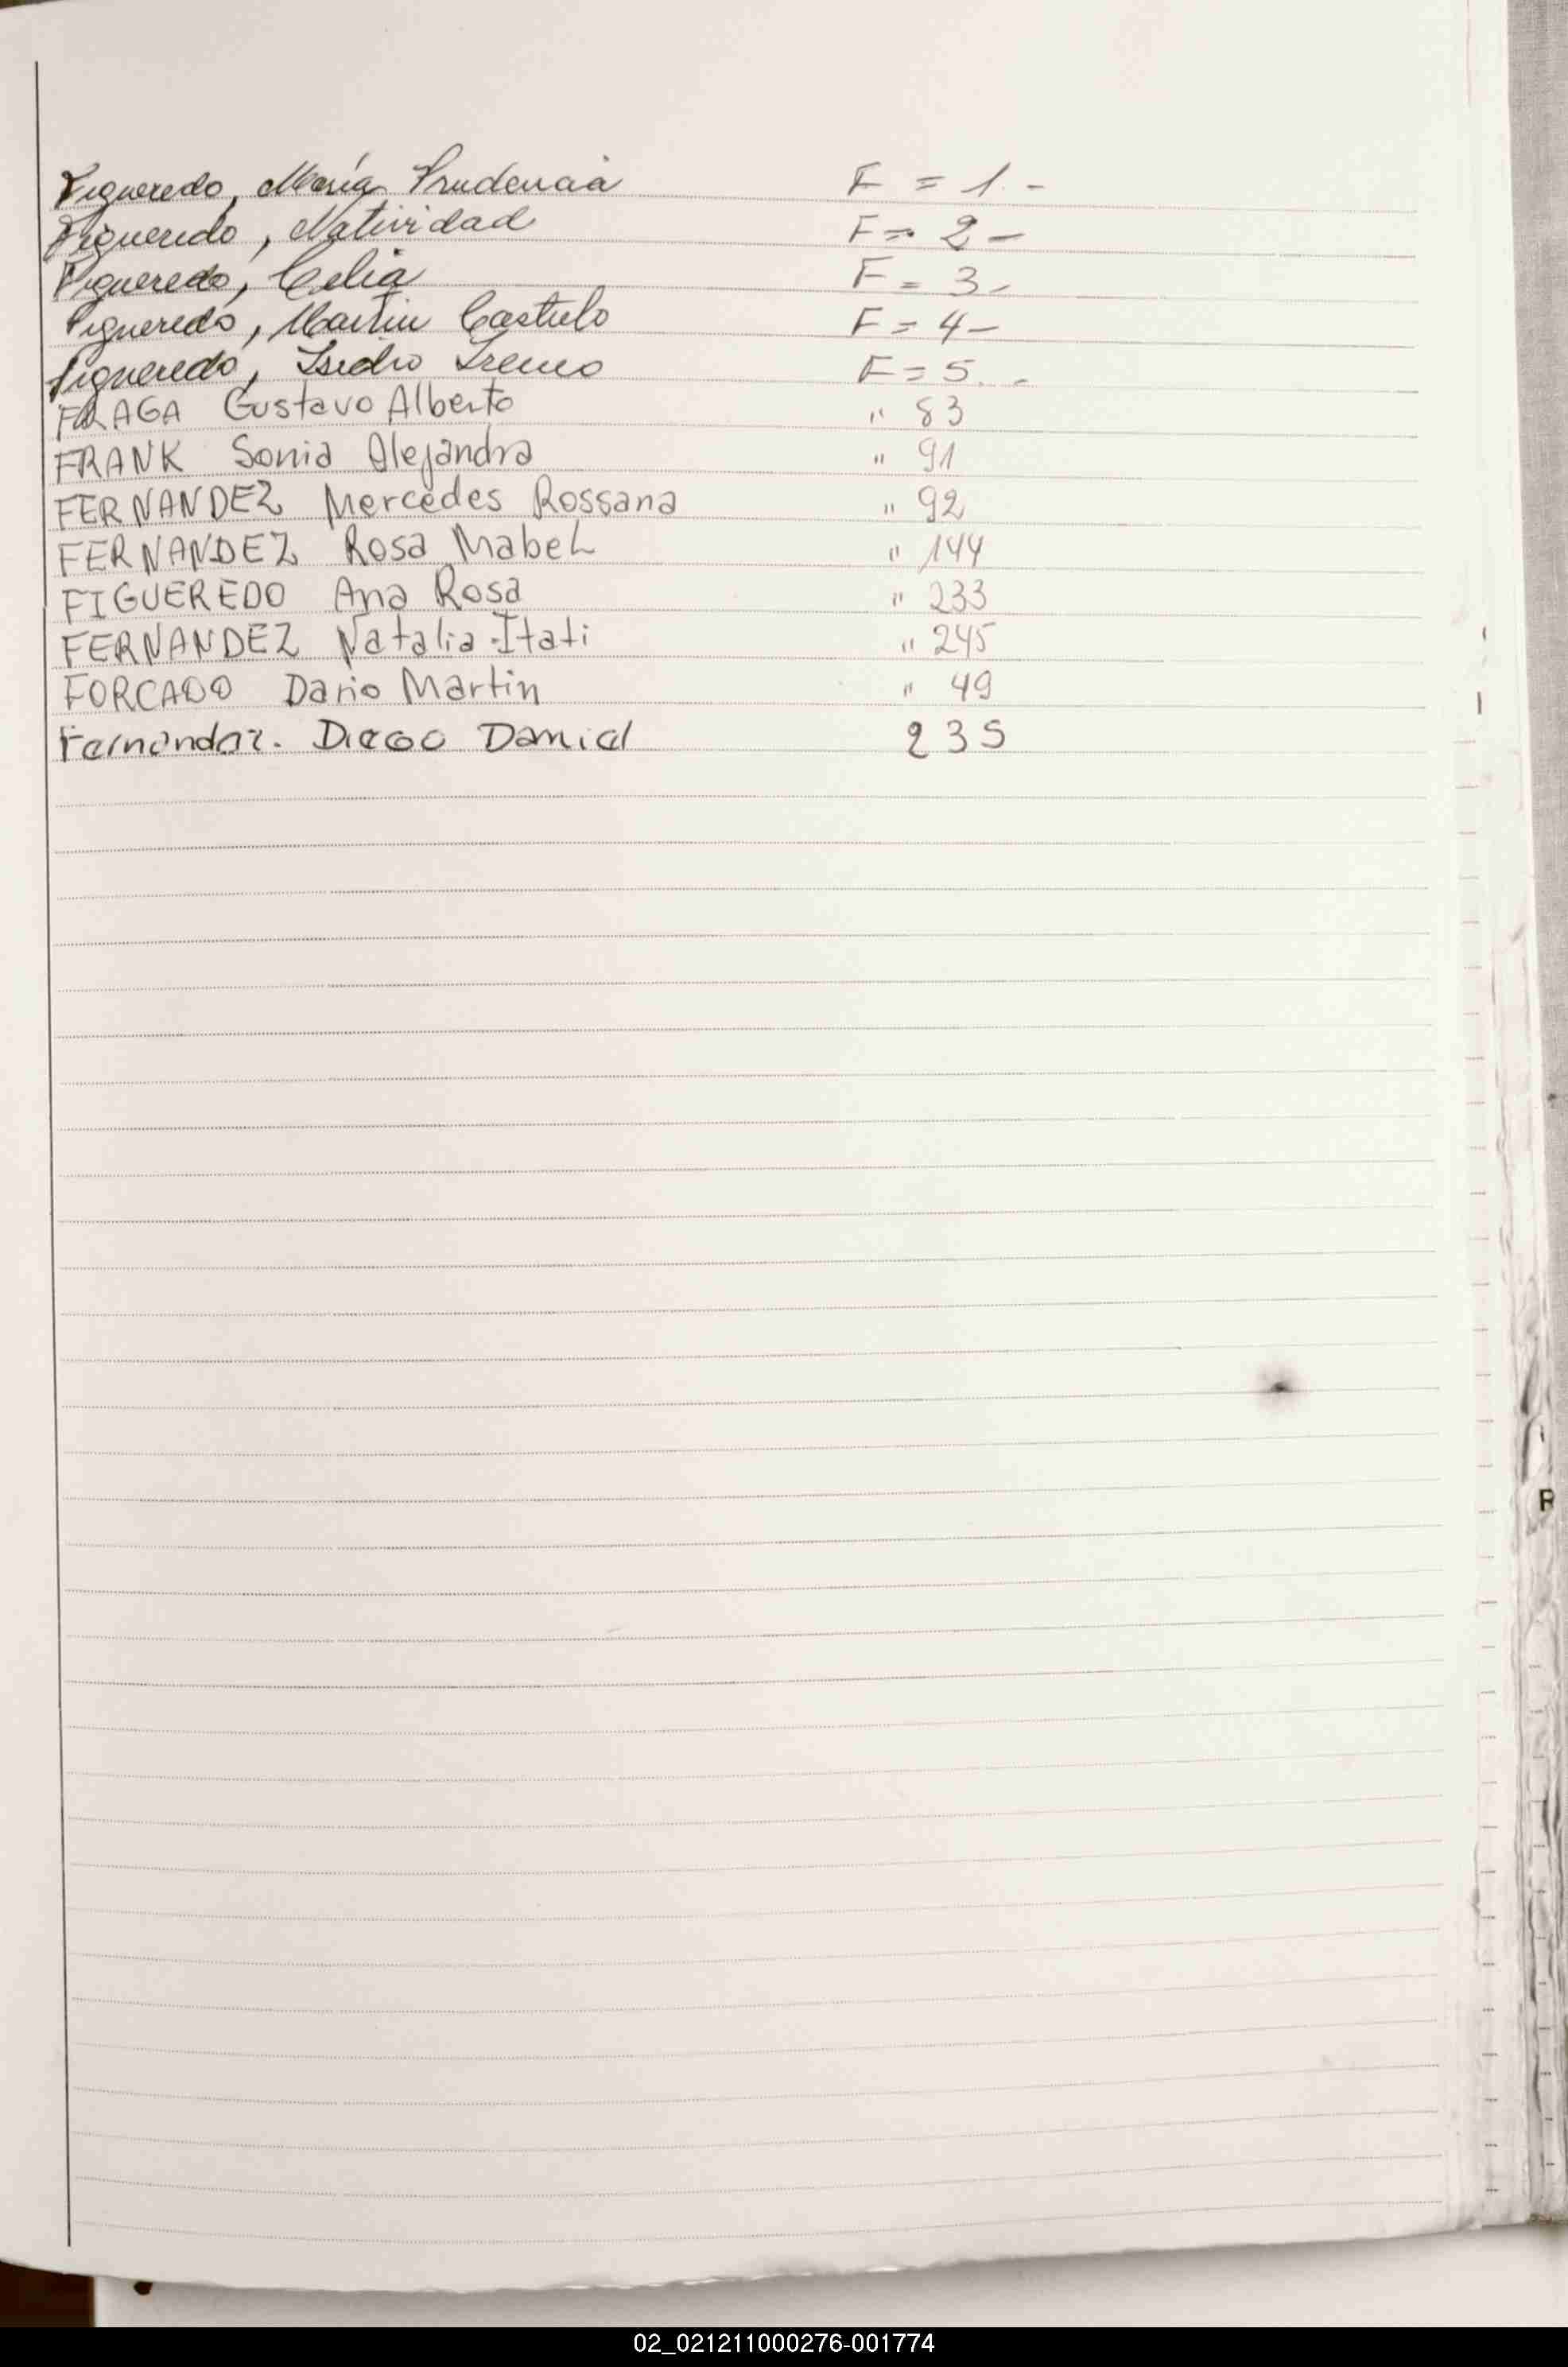 Figueredo, María Prudencia F = 1.-
Figueredo, Natividad F = 2-
Figueredo, Celia F = 3-
Figueredo, Martin Castulo F = 4-
Figueredo, Isidro Ireneo F = 5.-
FRAGA Gustavo Alberto " 83
FRANK Sonia Alejandra " 91
FERNANDEZ Mercedes Rossana " 92
FERNANDEZ Rosa Mabel " 144
FIGUEREDO Ana Rosa " 233
FERNANDEZ Natalia Itati " 245
FORCADO Dario Martin " 49
Fernandez. Diego Daniel 235
R
02_021211000276-001774